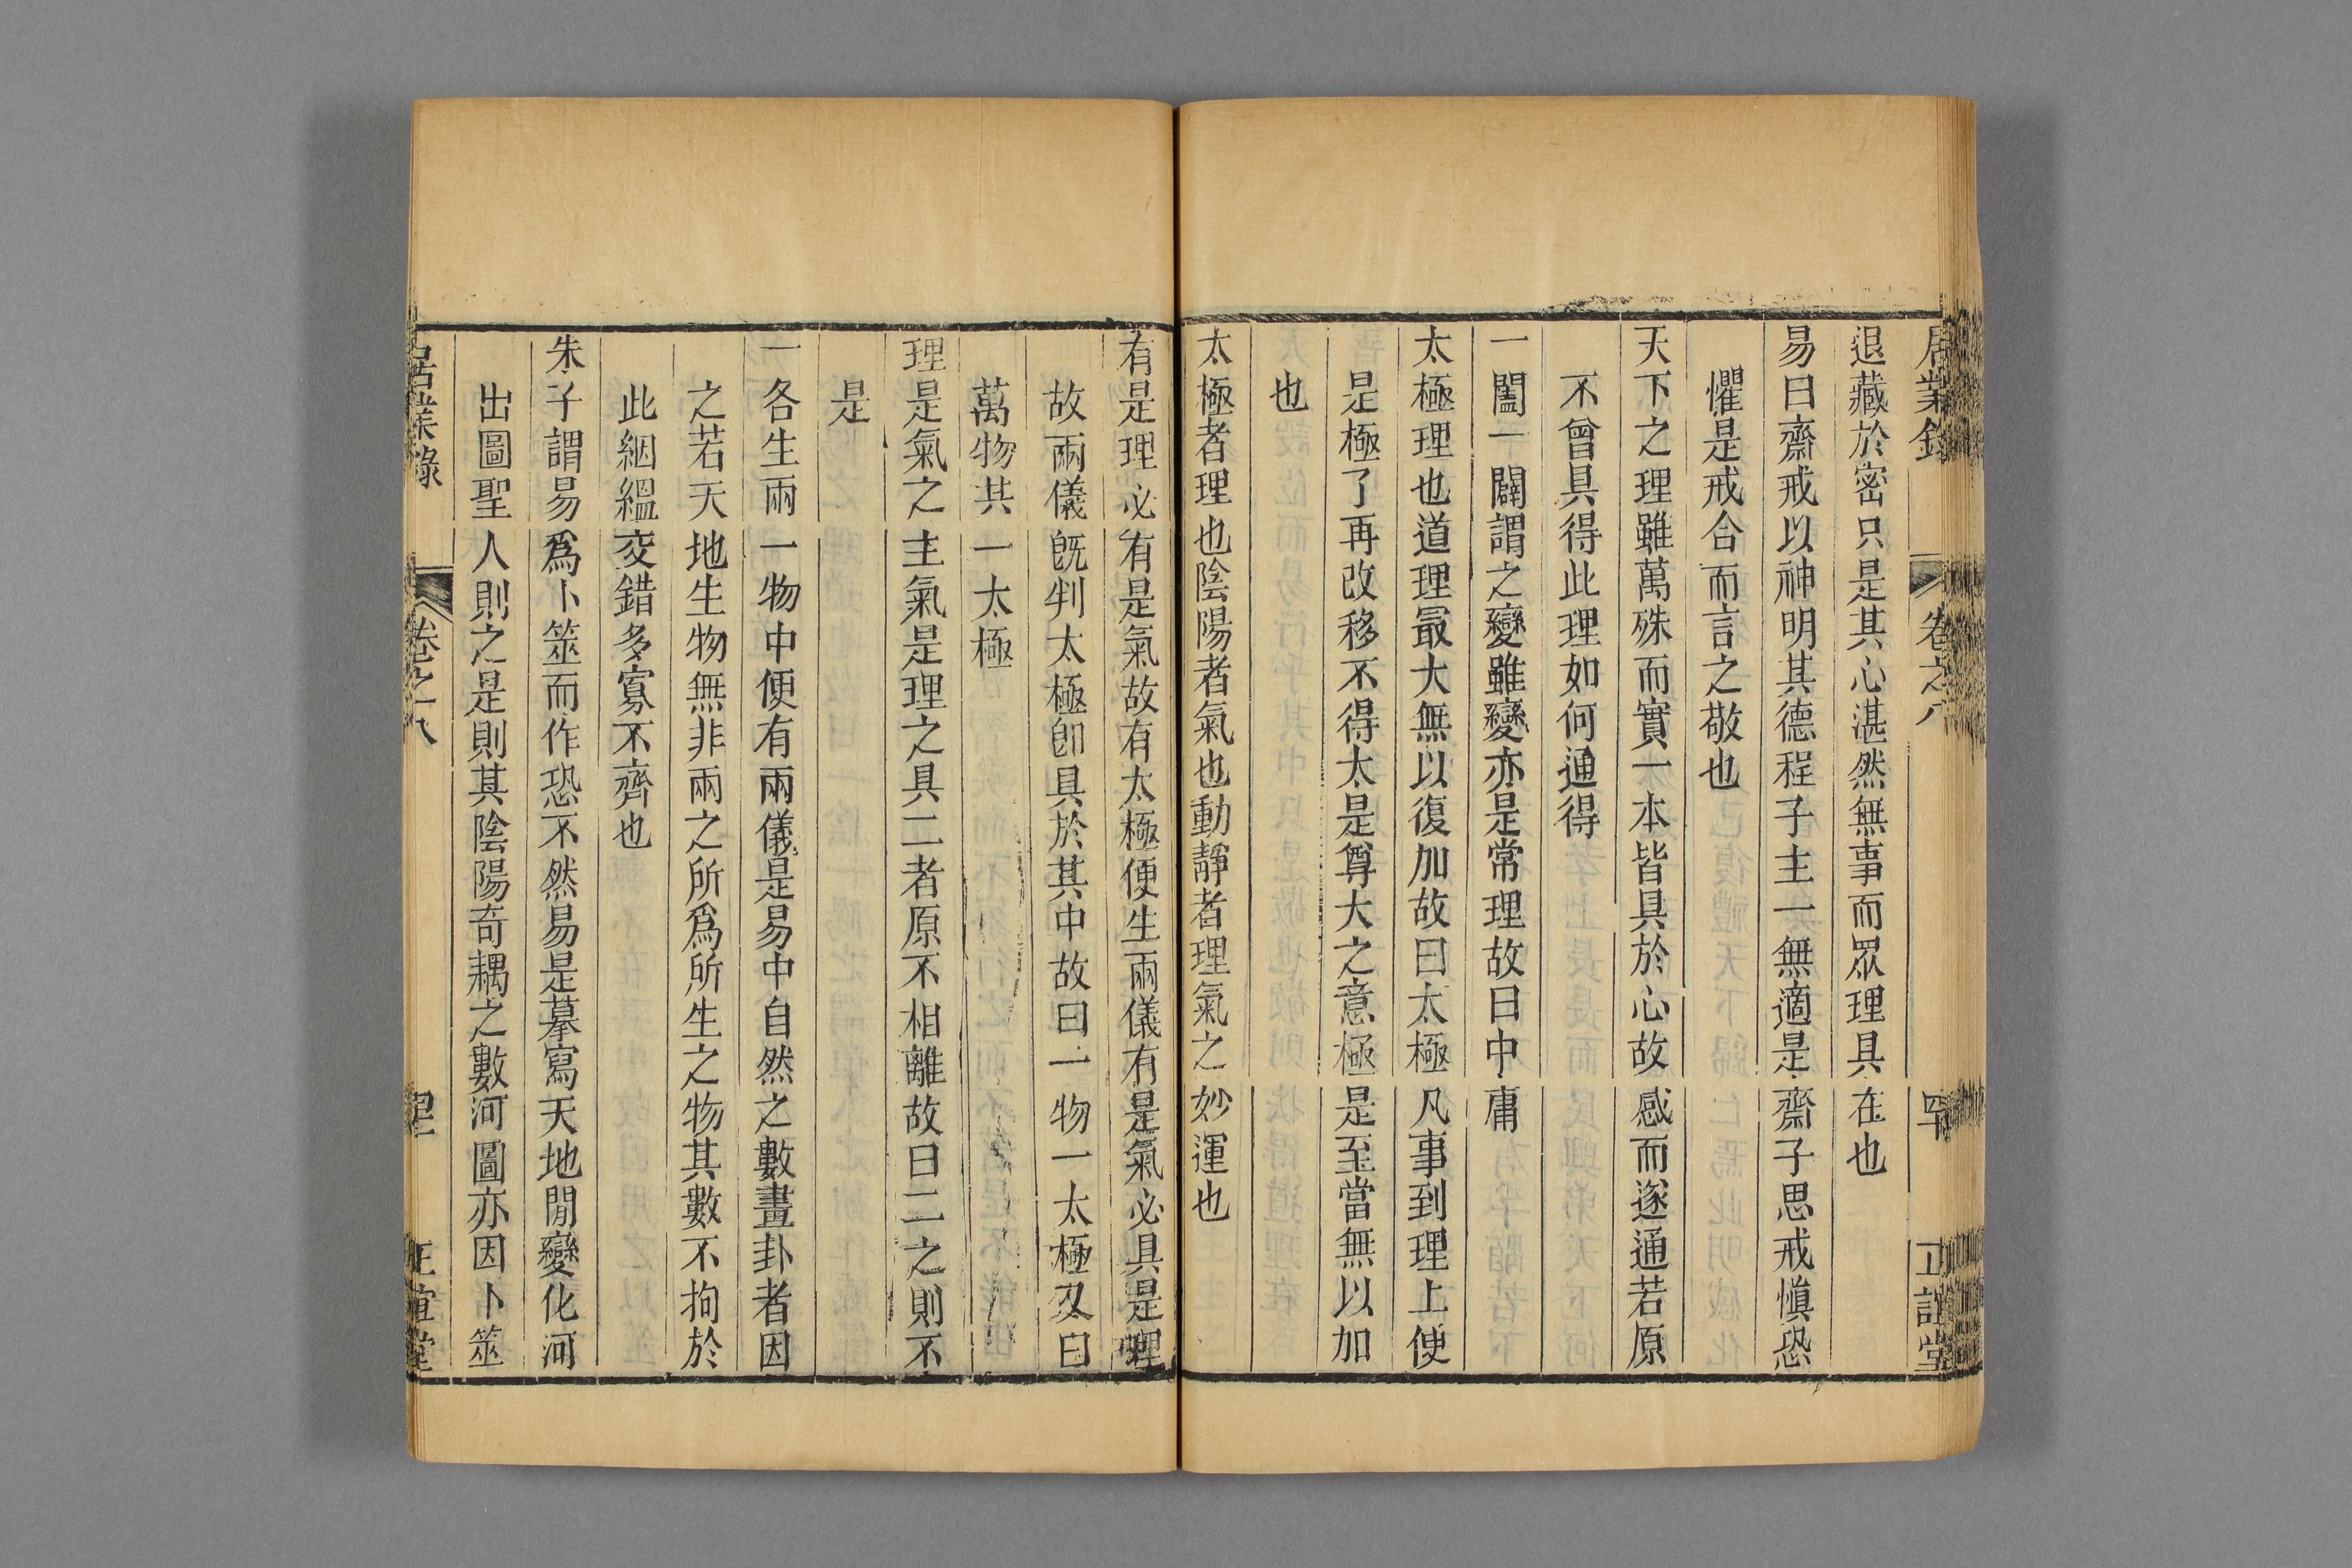 居業錄 卷之八 四十 正誼堂
退藏於密只是其心湛然無事而眾理具在也
易曰齋戒以神明其德程子主一無適是齋子思戒愼恐
懼是戒合而言之敬也
天下之理雖萬殊而實一本皆具於心故感而遂通若原
不曾具得此理如何通得
一闔一闢謂之變雖變亦是常理故曰中庸
太極理也道理最大無以復加故曰太極凡事到理上便
是極了再改移不得太是尊大之意極是至當無以加
也
太極者理也陰陽者氣也動靜者理氣之妙運也
有是理必有是氣故有太極便生兩儀有是氣必具是理
故兩儀旣判太極卽具於其中故曰一物一太極又曰
萬物共一太極
理是氣之主氣是理之具二者原不相離故曰二之則不
是
一各生兩一物中便有兩儀是易中自然之數畫卦者因
之若天地生物無非兩之所爲所生之物其數不拘於
此絪縕交錯多寡不齊也
朱子謂易爲卜筮而作恐不然易是摹寫天地閒變化河
出圖聖人則之是則其陰陽奇耦之數河圖亦因卜筮
居業錄 卷之八 正誼堂